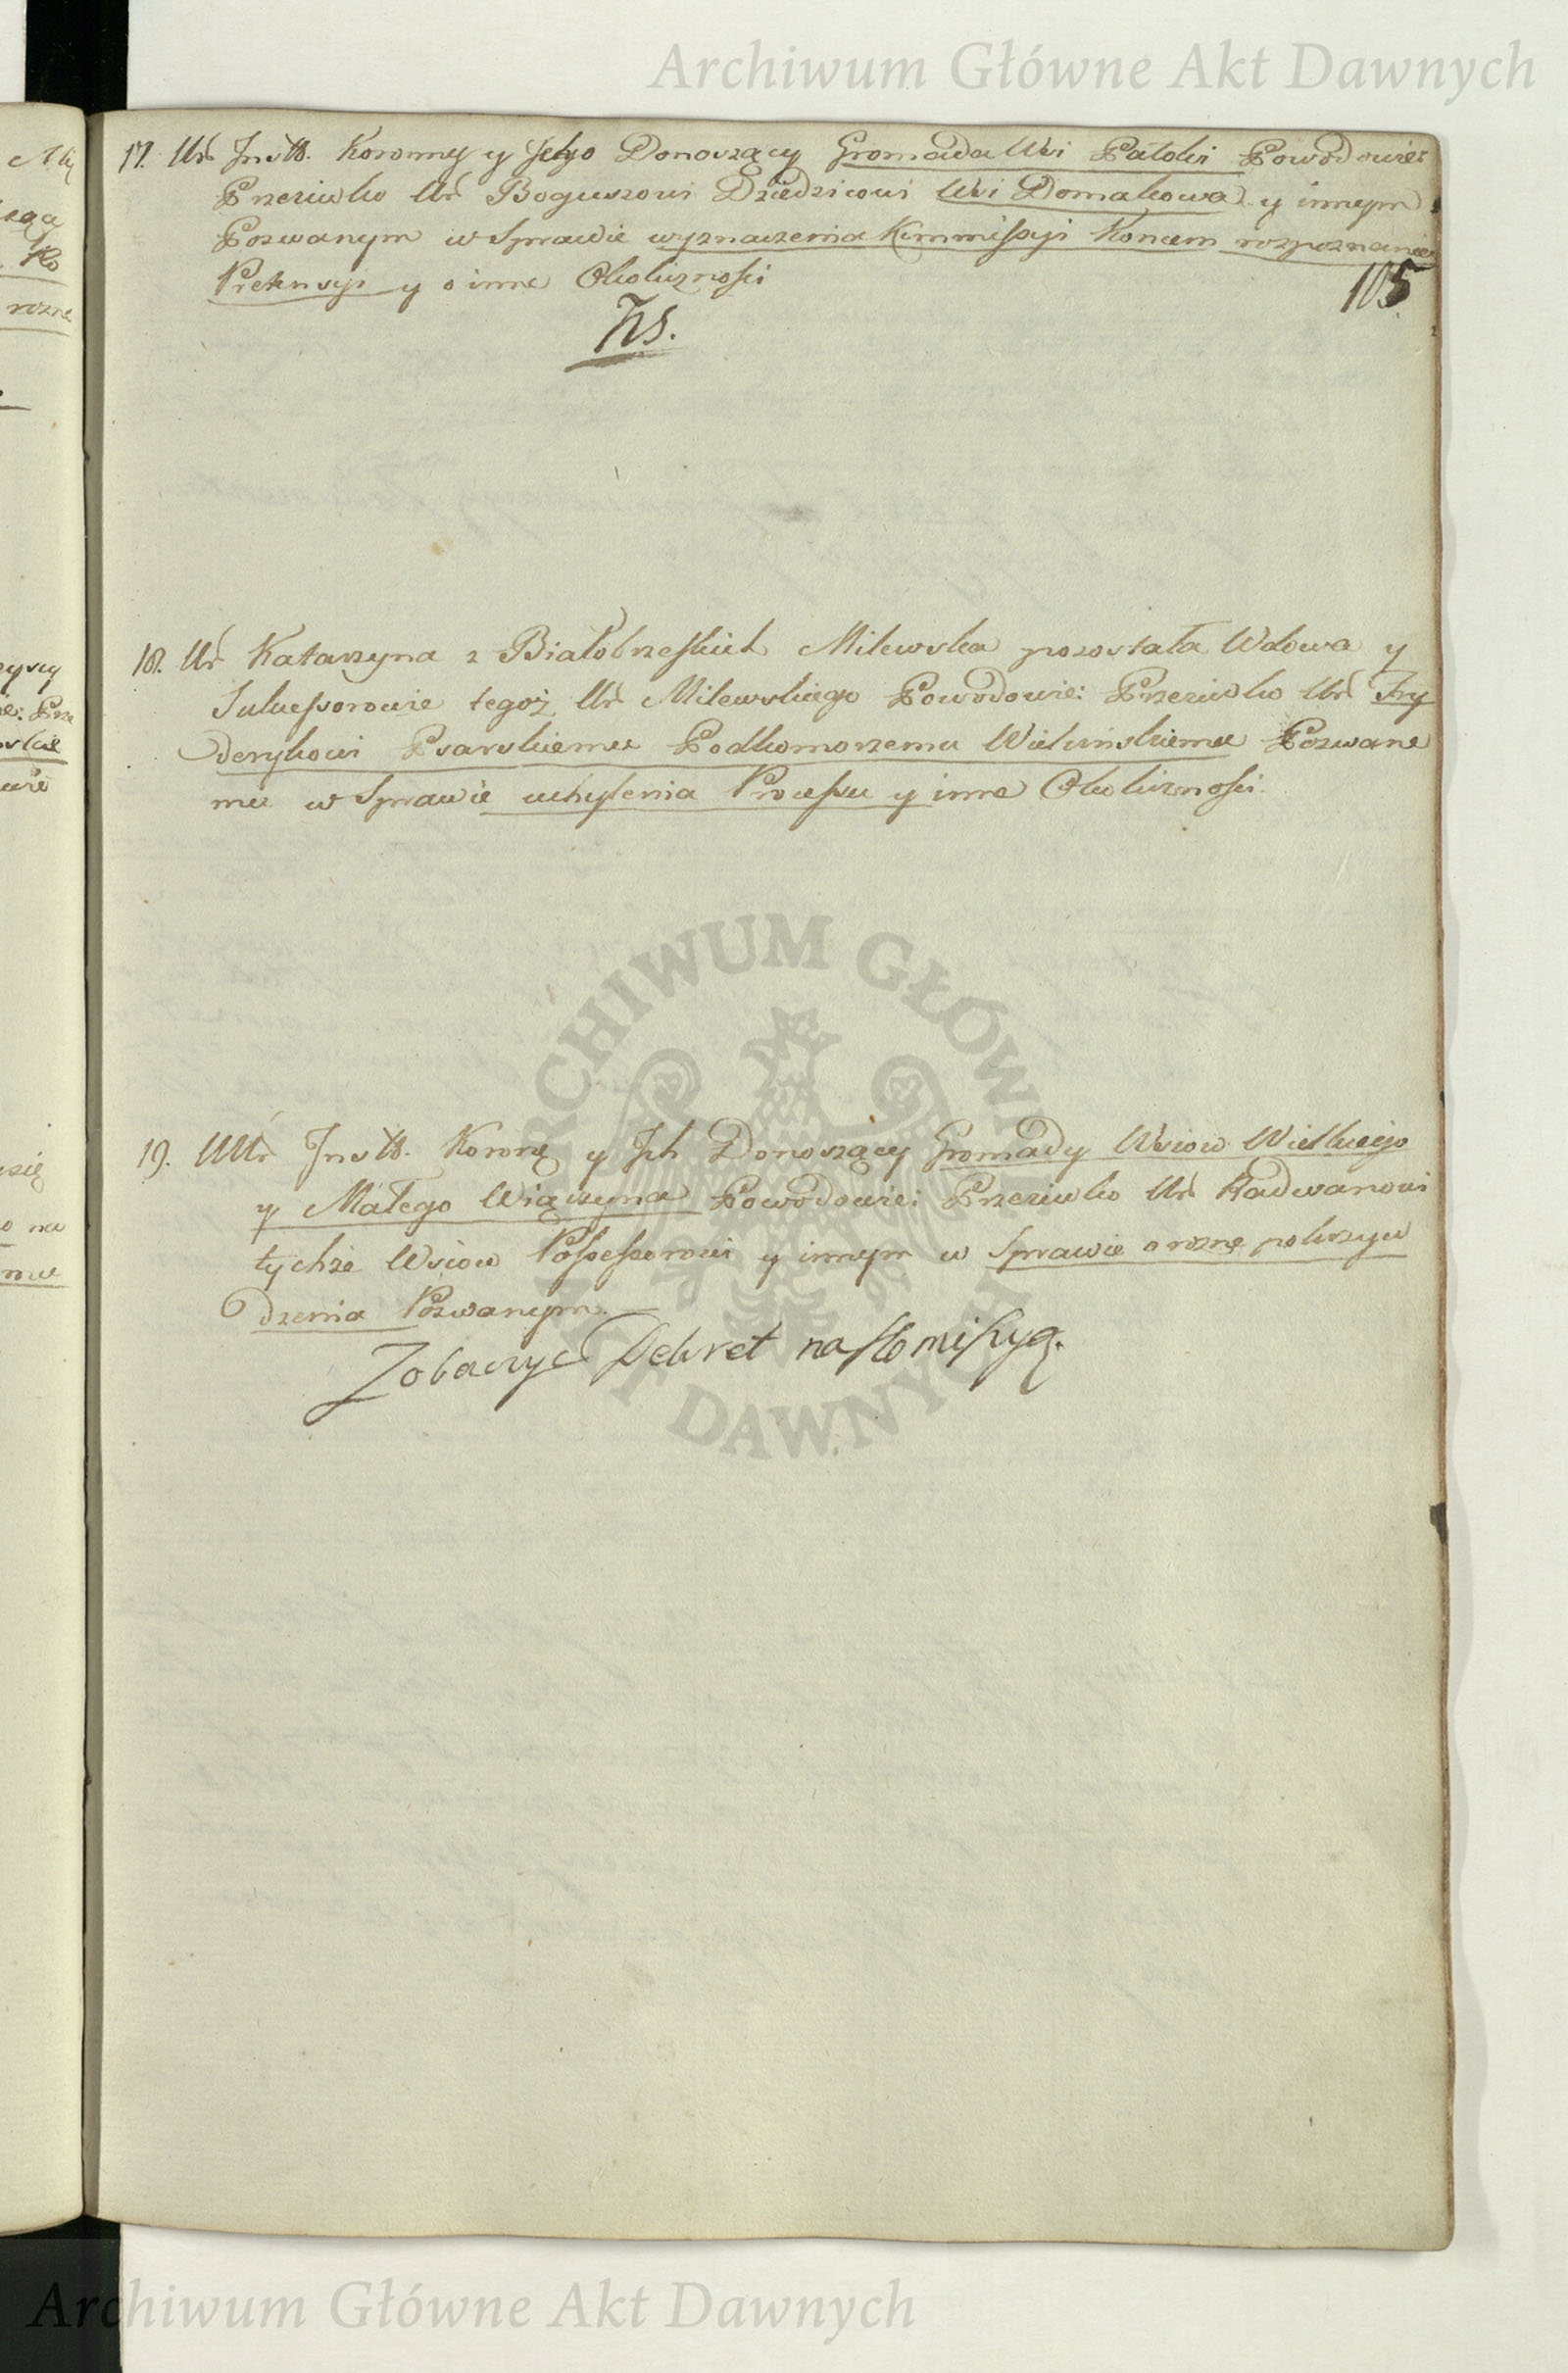 Archiwum Główne Akt Dawnych
17. Ur Instt. Koronny y Jego Donoszący Gromada Wsi Patoki Powodowie:
Przeciwko Ur Boguszowi Dziedzicowi Wsi Domakowa y innym
Pozwanym w Sprawie wyznaczenia Kommissyi Koncem rozpoznania
Pretensyi y o inne Okoliczności
105
Zts.
18. Ur Katarzyna z Białobrzeskich Milewska pozostała Wdowa y
Sukcessorowie tegoż Ur Milewskiego Powodowie: Przeciwko Ur Fry
derykowi Psarskiemu Podkomorzemu Wieluńskiemu Pozwane
mu w Sprawie uchylenia Processu y inne Okoliczności.
19. UUr Instt. Koronę y Ich Donoszący Gromady Wsiow Wielkiego
y Małego Wiączyna Powodowie: Przeciwko Ur Radwanowi
tychże Wsiow Possessorowi y innym w Sprawie o rozne pokrzyw
dzenia Pozwanym. —
Zobaczyc Dekret na Komissyą.
ARCHIWUM GŁÓWNE
AKT DAWNYCH
Archiwum Główne Akt Dawnych